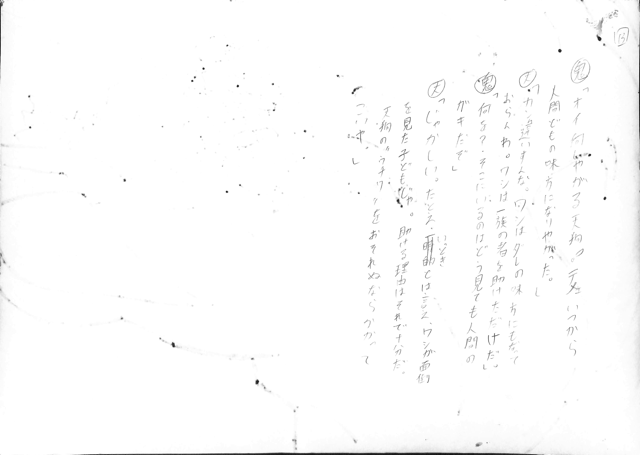 13
鬼「オイ何しやがる天狗!テメェいつから
人間どもの味方になりやがった。」
天「カン違いすんな。ワシはダレの味方にもなって
おらんわ。ワシは一族の者を助けただけだ」
鬼「何を?そこにいるのはどう見ても人間の
ガキだぞ」
天「しゃかしい。たとえ一時いっときとは言え、ワシが面倒
を見た子どもじゃ。助ける理由はそれで十分だ。
天狗のウチワをおそれぬならかかって
こい!!」